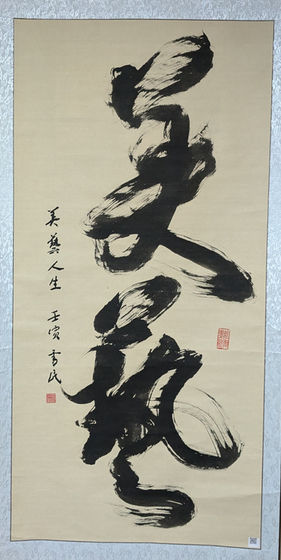 美藝
美藝人生 壬寅